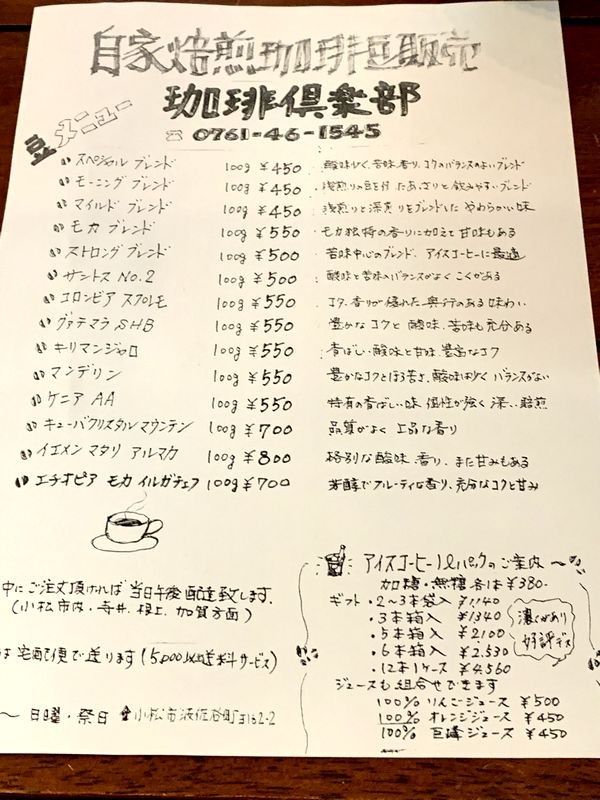 自家焙煎珈琲豆販売
珈琲倶楽部
☎ 0761-46-1545
豆メニュー
スペシャル ブレンド 100g ¥450 酸味少く、苦味、香り、コクのバランスのよいブレンド
モーニング ブレンド 100g ¥450 浅煎りの豆を付 たあっさりと飲みやすいブレンド
マイルド ブレンド 100g ¥450 浅煎りと深煎りをブレンドした やわらかい味
モカ ブレンド 100g ¥550 モカ独特の香りに加えて 甘味もある
ストロング ブレンド 100g ¥500 苦味中心のブレンド、アイスコーヒーに最適
サントス No.2 100g ¥500 酸味と苦味のバランスがよく こくがある
コロンビア スプレモ 100g ¥550 コク、香りが優れた 奥行のある 味わい
グァテマラ SHB 100g ¥550 豊かな コクと 酸味、苦味も充分ある
キリマンジャロ 100g ¥550 香ばしい 酸味と甘味 豊富なコク
マンデリン 100g ¥550 豊かなコクとほろ苦さ、酸味は少く バランスがよい
ケニア AA 100g ¥550 特有の香ばしい味 個性が強く 深い焙煎
キューバクリスタルマウンテン 100g ¥700 品質がよく 上品な香り
イエメン マタリ アルマカ 100g ¥800 格別な酸味、香り、また甘みもある
エチオピア モカ イルガチェフ 100g ¥700 芳醇でフルーティな香り、充分なコクと甘み
中にご注文頂ければ 当日午後配達致します。
(小松市内・寺井、根上、加賀方面)
は 宅配便で送ります (5,000以上送料サービス)
〜 日曜・祭日 小松市波佐谷町ヨ162-2
アイスコーヒー1ℓパックのご案内
加糖・無糖 各は ¥380-
ギフト ・2〜3本袋入 ¥1,140
・3本箱入 ¥1340
・5本箱入 ¥2100
・6本箱入 ¥2.530
・12本1ケース ¥4,560
濃くがあり
好評デス
ジュースも 組合せできます
100% りんごジュース ¥500
100% オレンジジュース ¥450
100% 巨峰ジュース ¥450